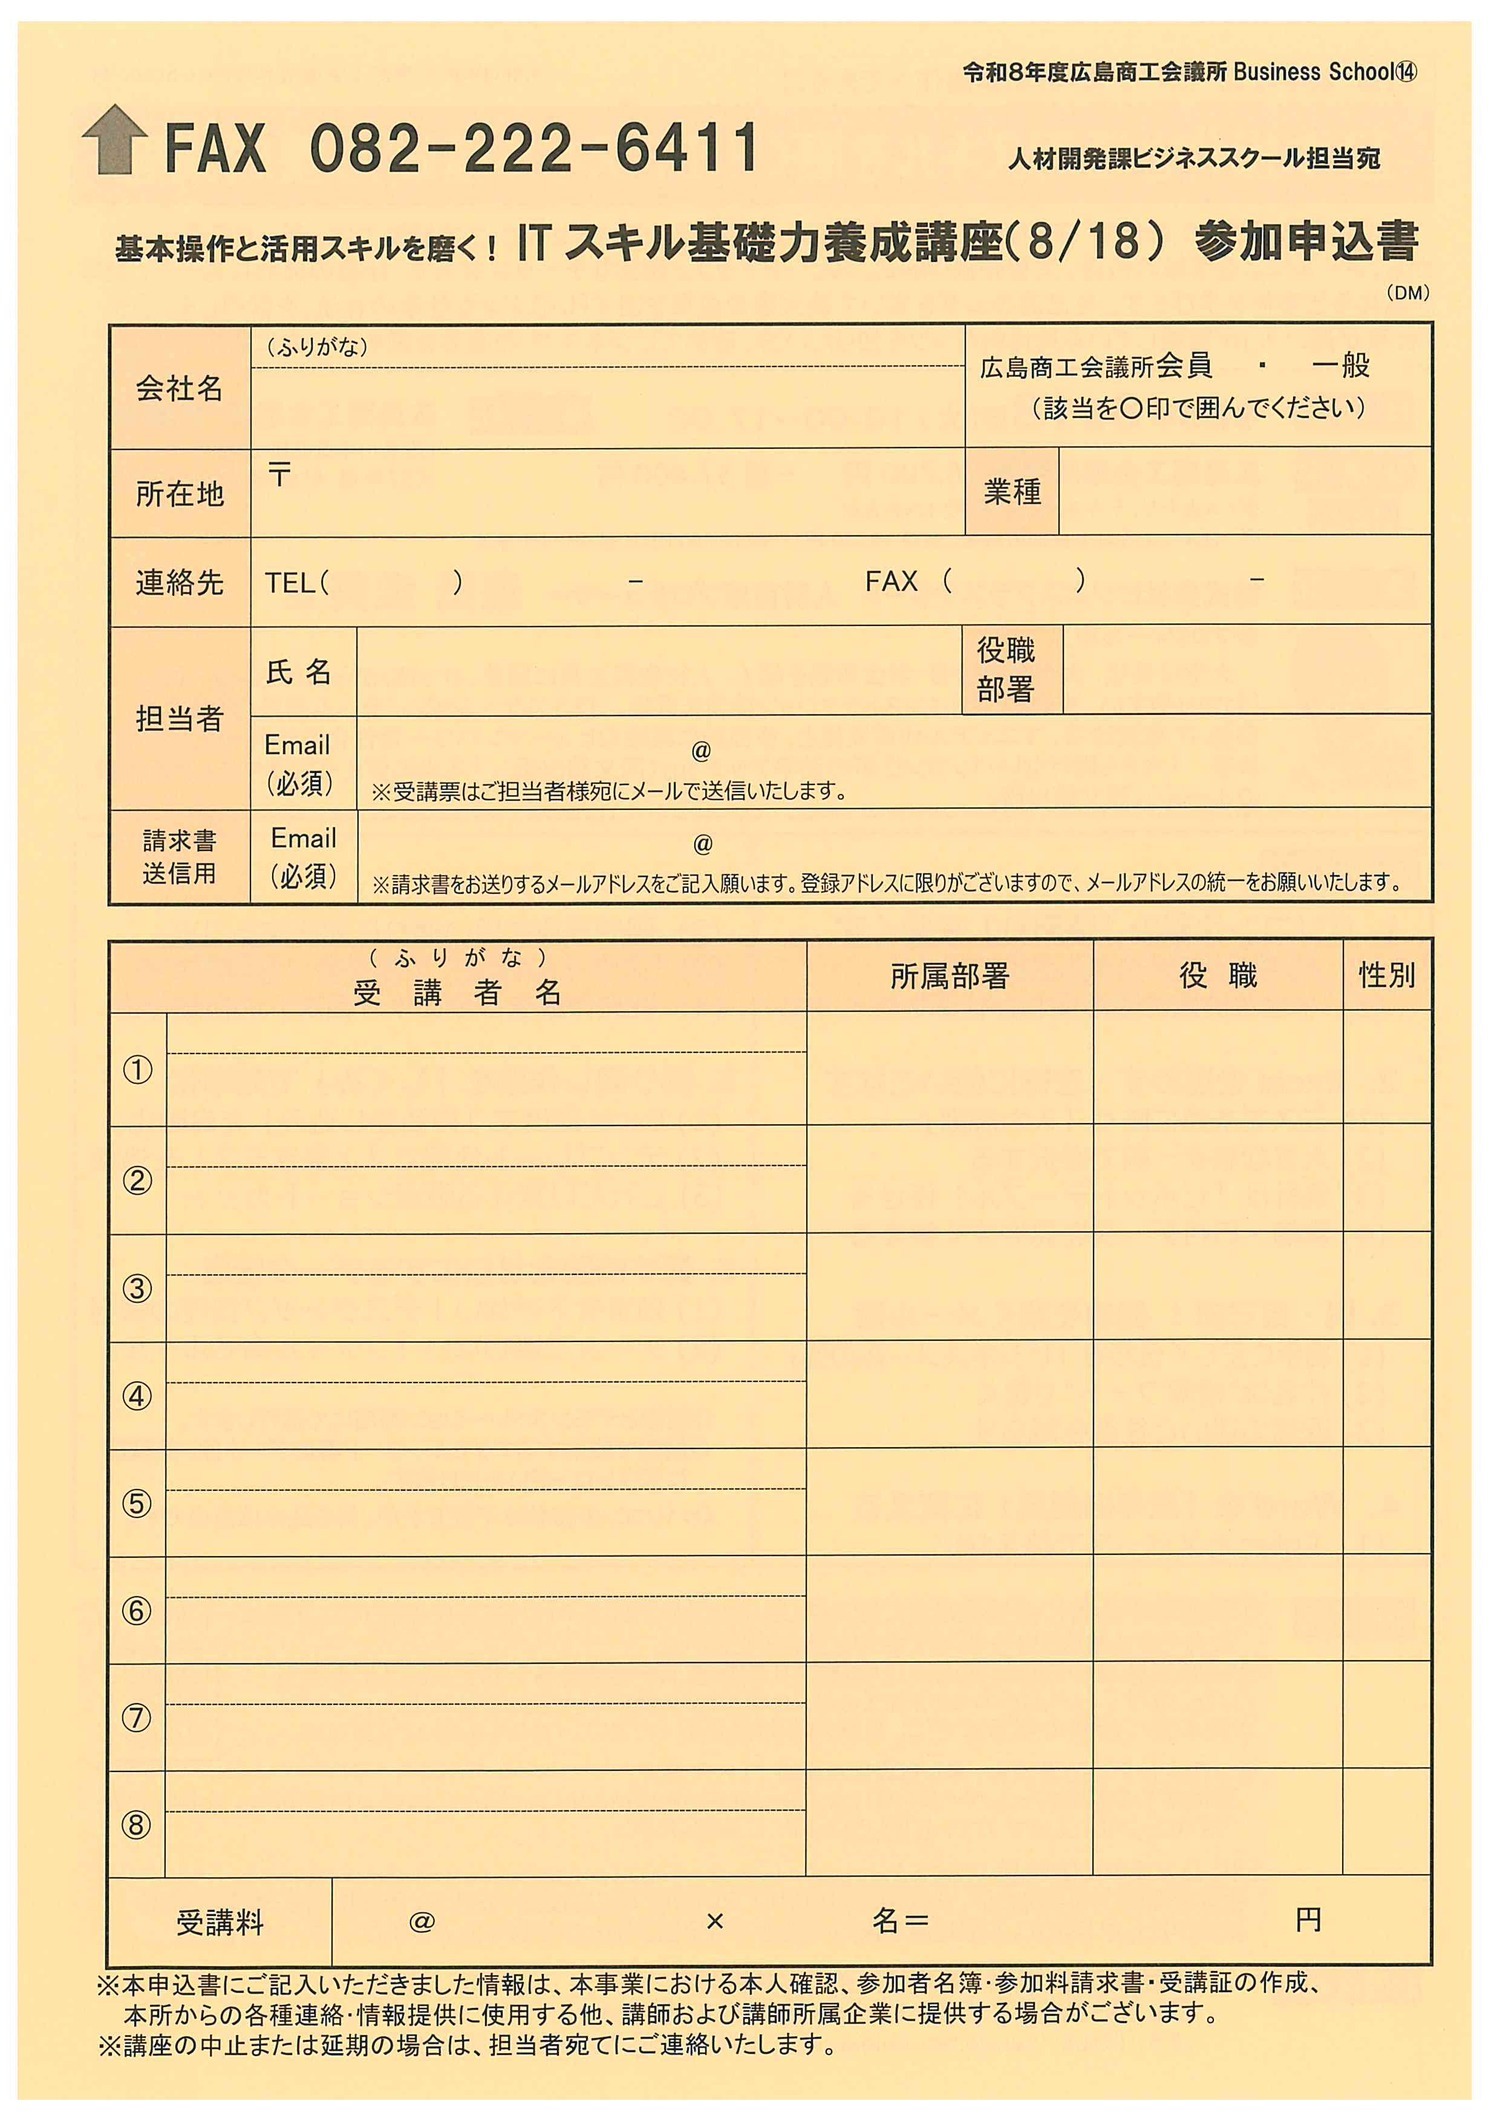 令和8年度広島商工会議所 Business School⑭
FAX 082-222-6411
人材開発課ビジネススクール担当宛
基本操作と活用スキルを磨く！ IT スキル基礎力養成講座(8/18) 参加申込書
(DM)
会社名
(ふりがな)
広島商工会議所会員 ・ 一般
(該当を〇印で囲んでください)
所在地
〒
業種
連絡先
TEL( ) － FAX ( ) －
担当者
氏 名
役職
部署
Email
(必須)
@
※受講票はご担当者様宛にメールで送信いたします。
請求書
送信用
Email
(必須)
@
※請求書をお送りするメールアドレスをご記入願います。登録アドレスに限りがございますので、メールアドレスの統一をお願いいたします。
( ふ り が な )
受 講 者 名
所属部署
役 職
性別
①
②
③
④
⑤
⑥
⑦
⑧
受講料
@ × 名＝ 円
※本申込書にご記入いただきました情報は、本事業における本人確認、参加者名簿・参加料請求書・受講証の作成、
本所からの各種連絡・情報提供に使用する他、講師および講師所属企業に提供する場合がございます。
※講座の中止または延期の場合は、担当者宛てにご連絡いたします。